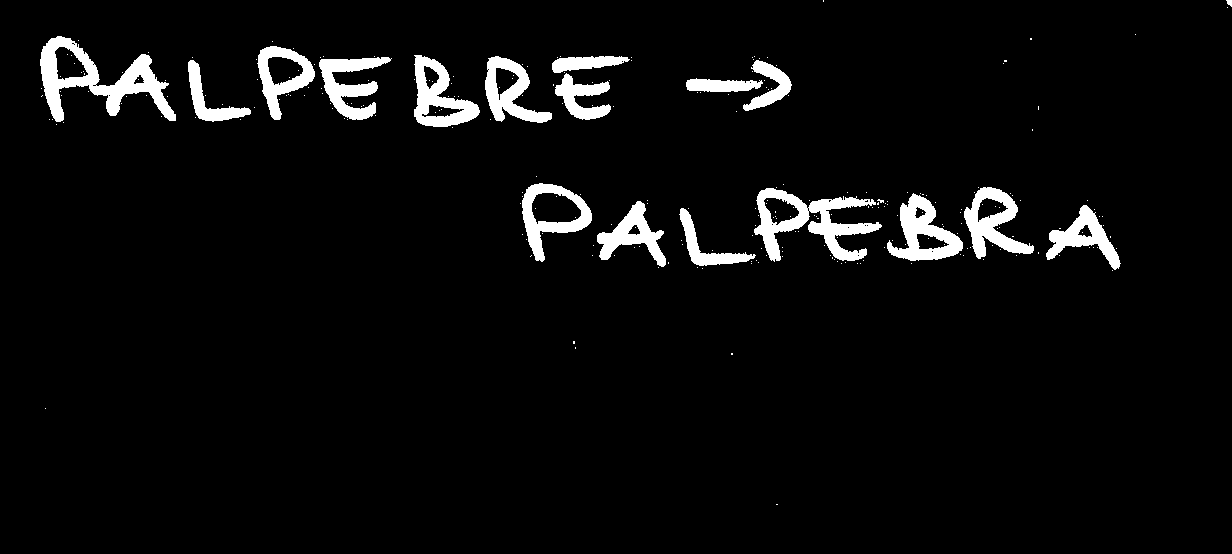 PALPEBRE →
PALPEBRA